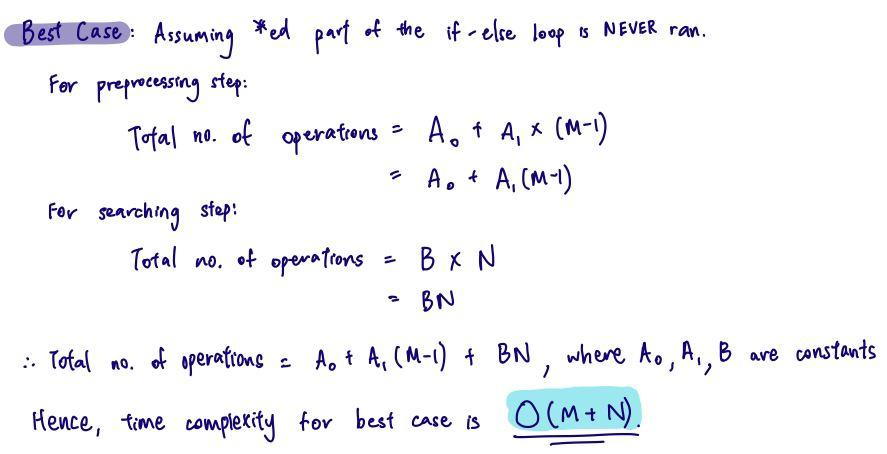 Best Case: Assuming *ed part of the if-else loop is NEVER ran.
For preprocessing step:
Total no. of operations = A₀ + A₁ × (M-1)
= A₀ + A₁(M-1)
For searching step:
Total no. of operations = B × N
= BN
∴ Total no. of operations = A₀ + A₁(M-1) + BN, where A₀, A₁, B are constants
Hence, time complexity for best case is O(M+N).